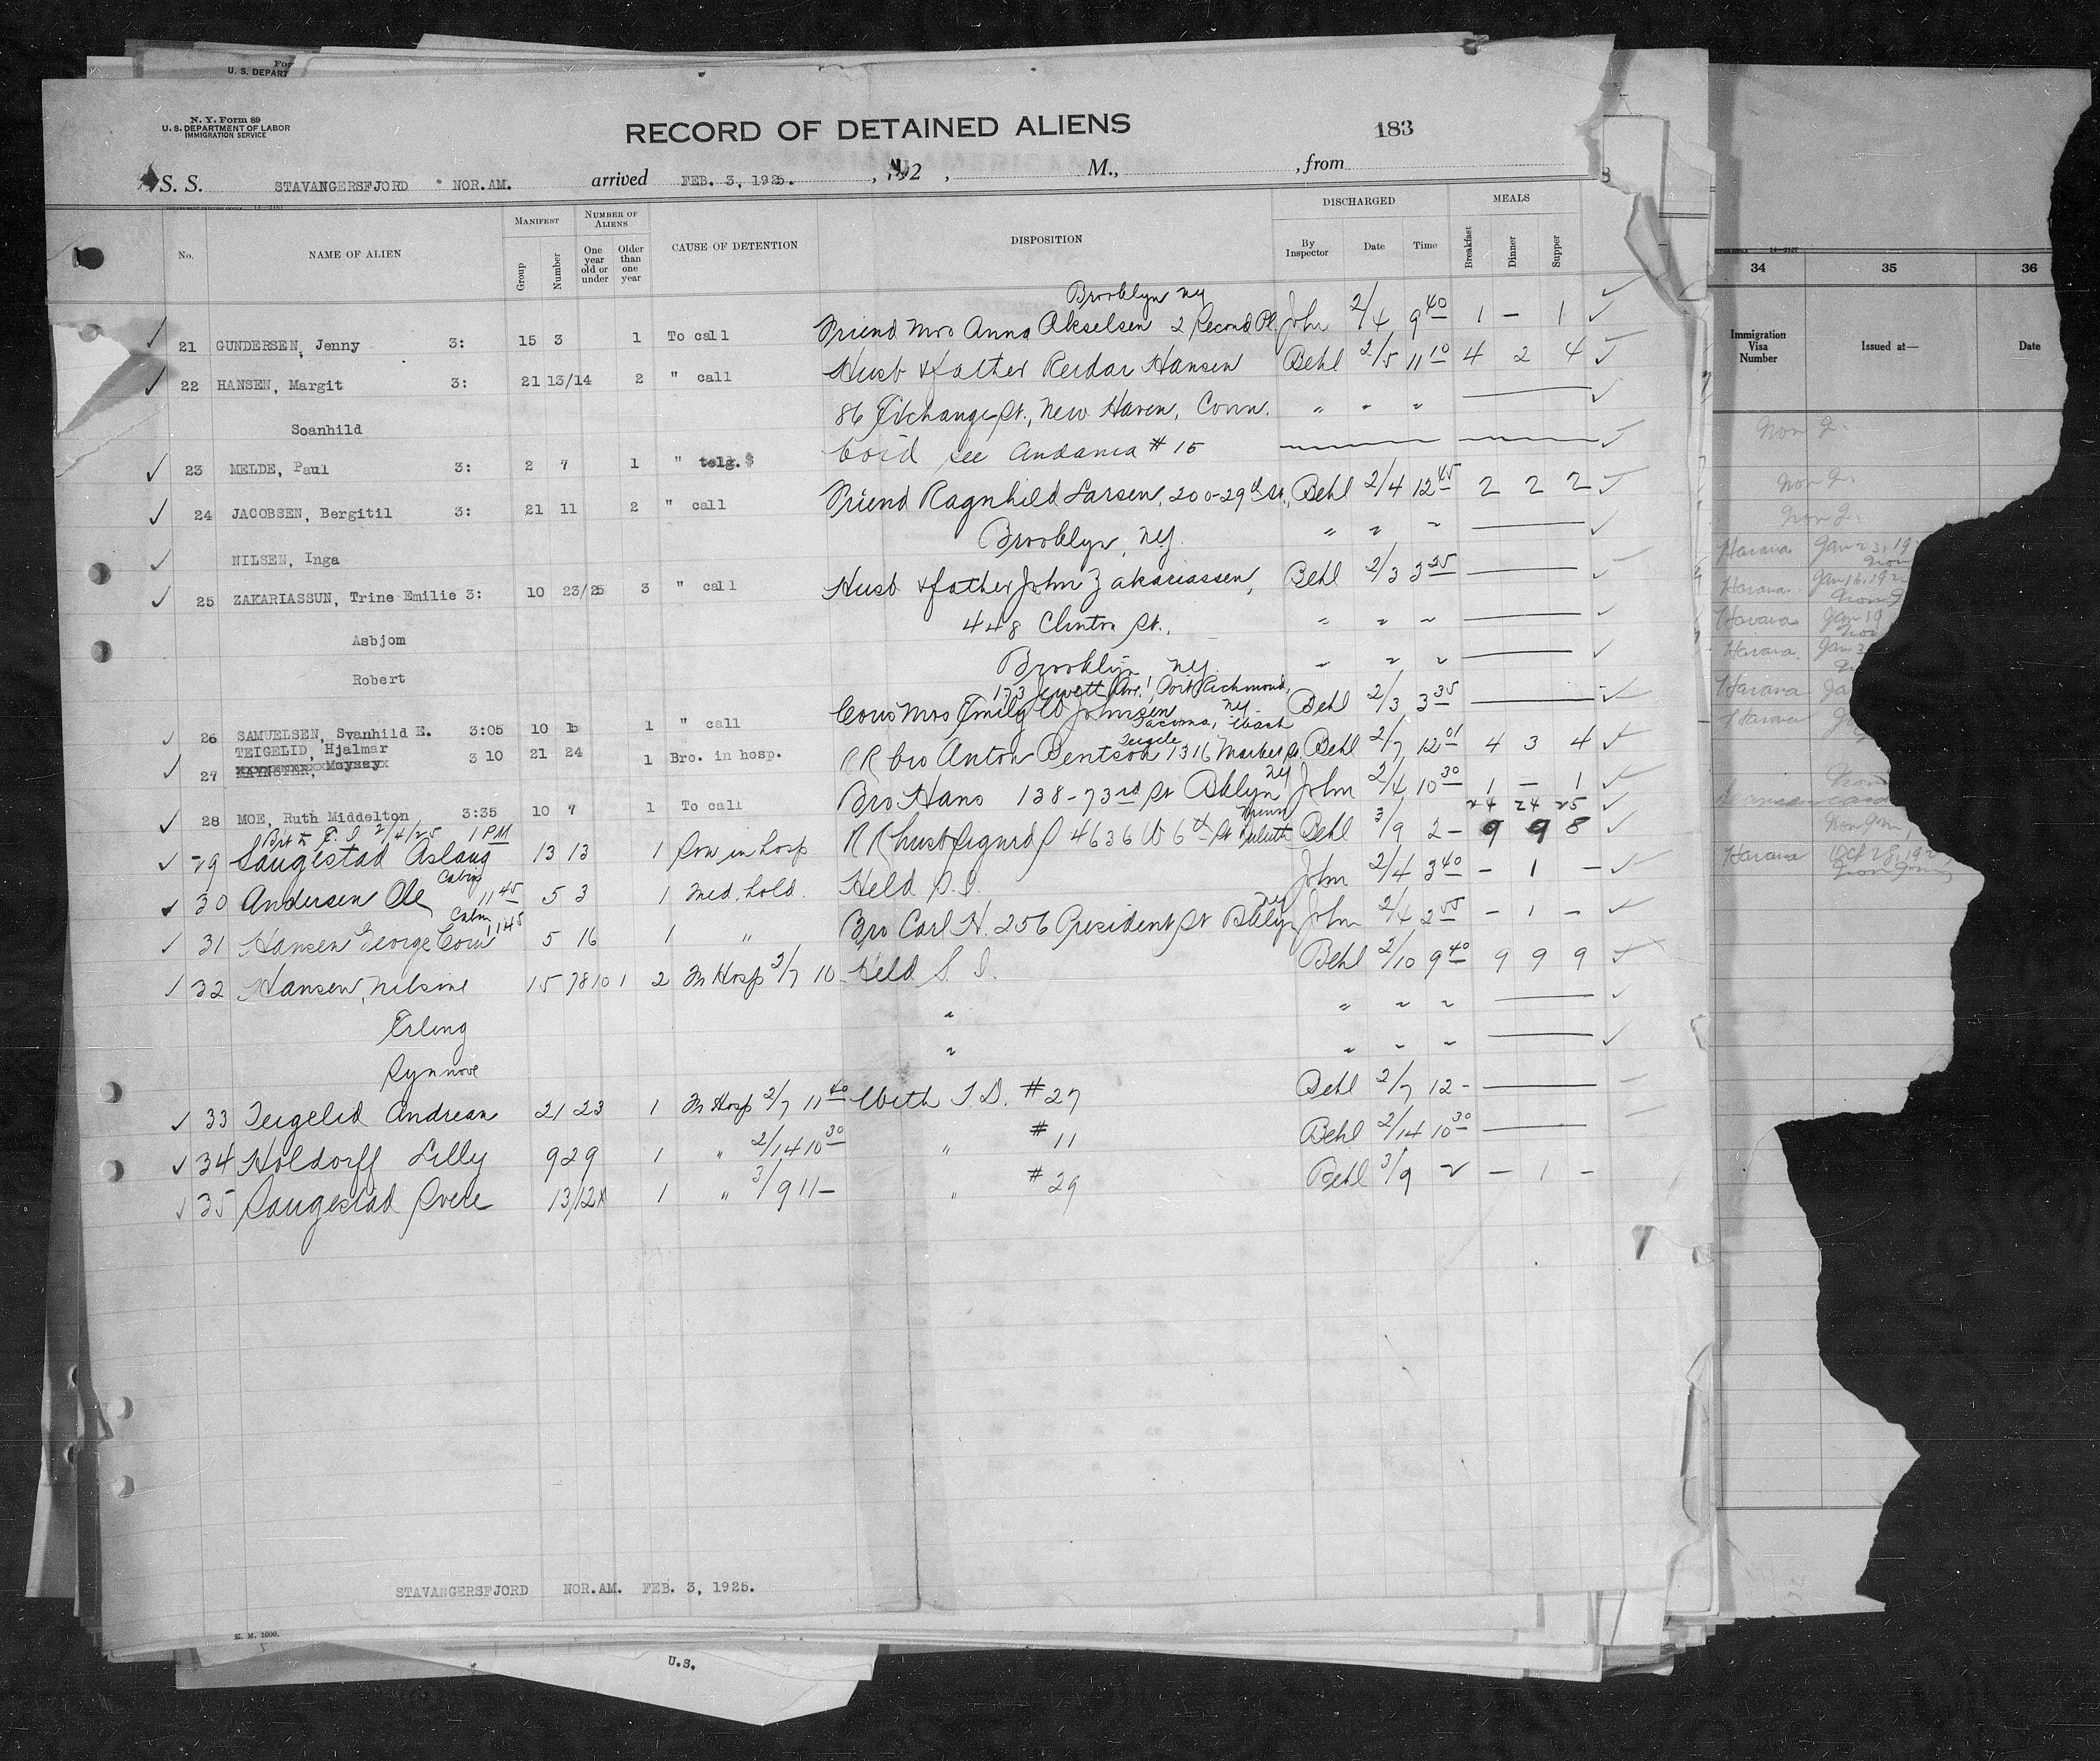 For
U. S. DEPART
N. Y. Form 89
U. S. DEPARTMENT OF LABOR
IMMIGRATION SERVICE
RECORD OF DETAINED ALIENS
183
S. S. STAVANGERSFJORD NOR.AM. arrived FEB. 3, 1925. , 192 , M., , from
No. NAME OF ALIEN MANIFEST Group Number NUMBER OF ALIENS One year old or under Older than one year CAUSE OF DETENTION DISPOSITION DISCHARGED By Inspector Date Time MEALS Breakfast Dinner Supper
Brooklyn NY
21 GUNDERSEN, Jenny 3: 15 3 1 To call Friend Mrs Anna Akselsen 2 Second Pl. John 2/4 9 40 1 — 1 ✓
22 HANSEN, Margit 3: 21 13/14 2 " call Husb & father Reidar Hansen Behl 2/5 11 10 4 2 4 ✓
Soanhild 86 Exchange St., New Haven, Conn. " " "
23 MELDE, Paul 3: 2 7 1 " telg.$ Void see Andania # 15
24 JACOBSEN, Bergitil 3: 21 11 2 " call Friend Ragnhild Larsen, 200-29th St., Behl 2/4 12 45 2 2 2 ✓
NILSEN, Inga Brooklyn, NY. " " "
25 ZAKARIASSUN, Trine Emilie 3: 10 23/25 3 " call Husb & father John Zakariassen, Behl 2/3 3 25
Asbjom 448 Clinton St., " " "
Robert Brooklyn NY. " " "
173 Jewett Ave., Port Richmond, NY.
26 SAMUELSEN, Svanhild E. 3:05 10 15 1 " call Cous Mrs Emily W Johnsen Behl 2/3 3 35
Tacoma, Wash
TEIGELID, Hjalmar
27 3 10 21 24 1 Bro. in hosp. RR bro Anton Bentson Teigele 1316 Market St. Behl 2/7 12 01 4 3 4 ✓
28 MOE, Ruth Middelton 3:35 10 7 1 To call Bro Hans 138-73rd St Bklyn NY John 2/4 10 30 1 — 1 ✓
2/4/25 1 PM 24 24 25
29 Saugestad Aslaug 13 13 1 Son in hosp RR husb Sigurd S 4636 W 6th St Duluth Minn Behl 3/9 2 — 9 9 8 ✓
30 Andersen Ole Cabin 11 45 5 3 1 Med. hold. Held S.I. John 2/4 3 40 — 1 — ✓
31 Hansen George Cabin 11 45 5 16 1 " Bro Carl H. 256 President St Bklyn NY John 2/4 2 55 — 1 — ✓
32 Hansen, Nilsine 15 78 10 1 2 In Hosp 2/7 10 Held S I. Behl 2/10 9 40 9 9 9 ✓
Erling " " " "
Synnove " " " "
33 Teigelid Andrean 21 23 1 In Hosp 2/7 11 40 With T.D. # 27 Behl 2/7 12 —
34 Holdorff Lilly 9 29 1 " 2/14 10 30 " # 11 Behl 2/14 10 30
35 Saugestad Svere 13/12 1 " 3/9 11 — " # 29 Behl 3/9 2 — 1 —
STAVANGERSFJORD NOR.AM. FEB. 3, 1925.
E. M. 1000.
U.S.
34 35 36
Immigration Visa Number Issued at— Date
Non Q.
Non Q.
Non Q.
Havana Jan 23, 19
Havana Jan 16, 192
Havana Jan 19
Havana Jan 3
Havana Ja
Havana
Havana Oct 28, 192